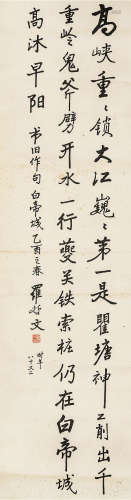 高峡重重锁大江巍巍第一是瞿塘神工削出千
重岭鬼斧劈开水一行夔关铁索桩仍在白帝城
高沐早阳 书旧作句白帝城乙酉之春 罗哲文
时年八十又二